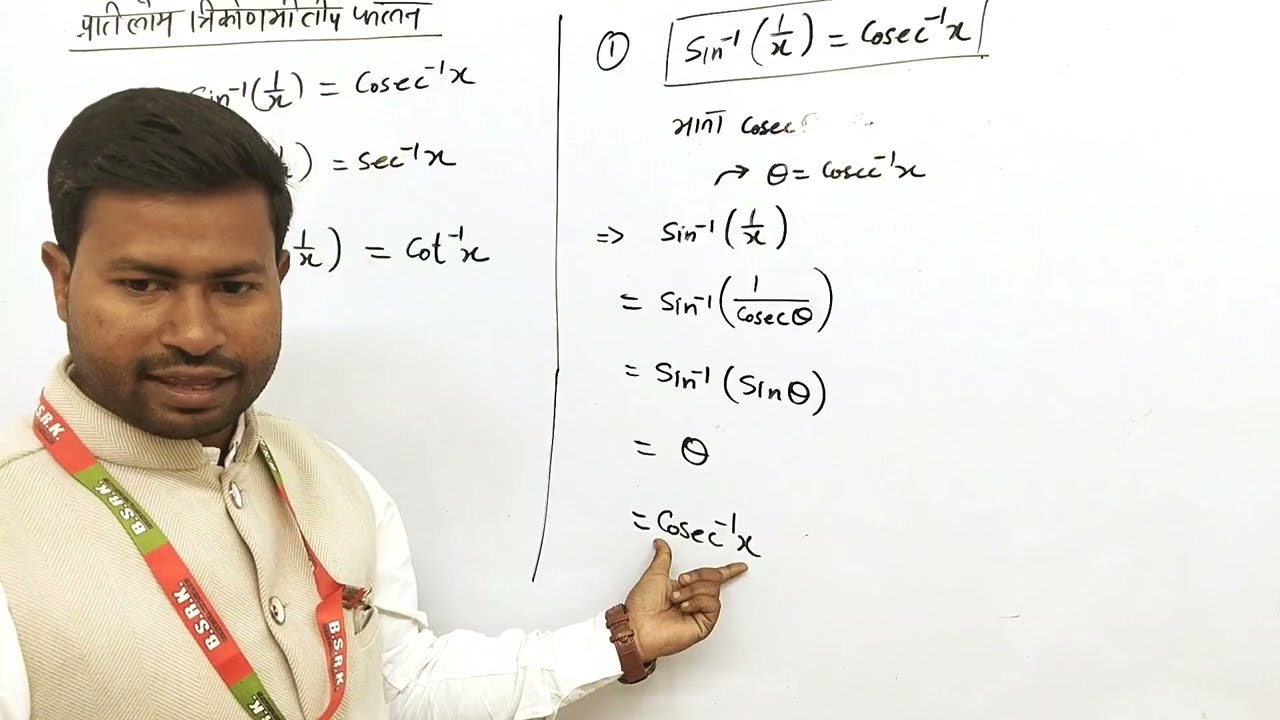 प्रतिलोम त्रिकोणमितीय फलन
Sin⁻¹(1/x) = Cosec⁻¹x
) = Sec⁻¹x
1/x) = Cot⁻¹x
① Sin⁻¹(1/x) = Cosec⁻¹x
माना Cosec
→ θ = Cosec⁻¹x
⇒ Sin⁻¹(1/x)
= Sin⁻¹(1/CosecΘ)
= Sin⁻¹(SinΘ)
= Θ
= Cosec⁻¹x
S.R.K.
B.S.R.K.
B.S.R.K.
B.S.R.K.